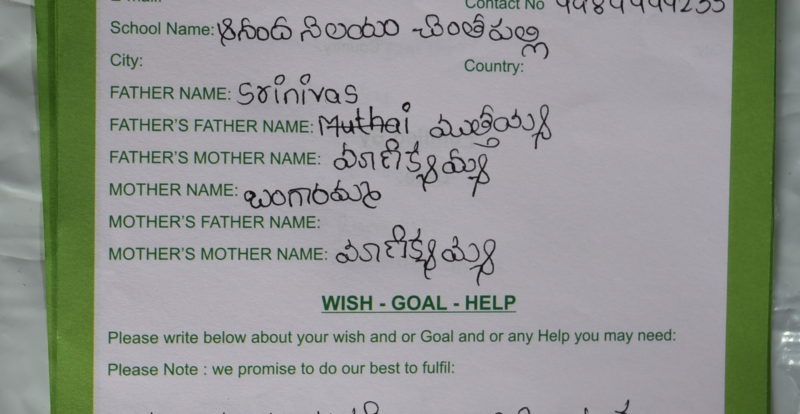 Contact No
School Name: ఆనంద నిలయం చింతపల్లి
City: Country:
FATHER NAME: Srinivas
FATHER'S FATHER NAME: Muthai ముత్తయ్య
FATHER'S MOTHER NAME: మాణిక్యమ్మ
MOTHER NAME: బంగారమ్మ
MOTHER'S FATHER NAME:
MOTHER'S MOTHER NAME: మాణిక్యమ్మ
WISH - GOAL - HELP
Please write below about your wish and or Goal and or any Help you may need:
Please Note : we promise to do our best to fulfil: